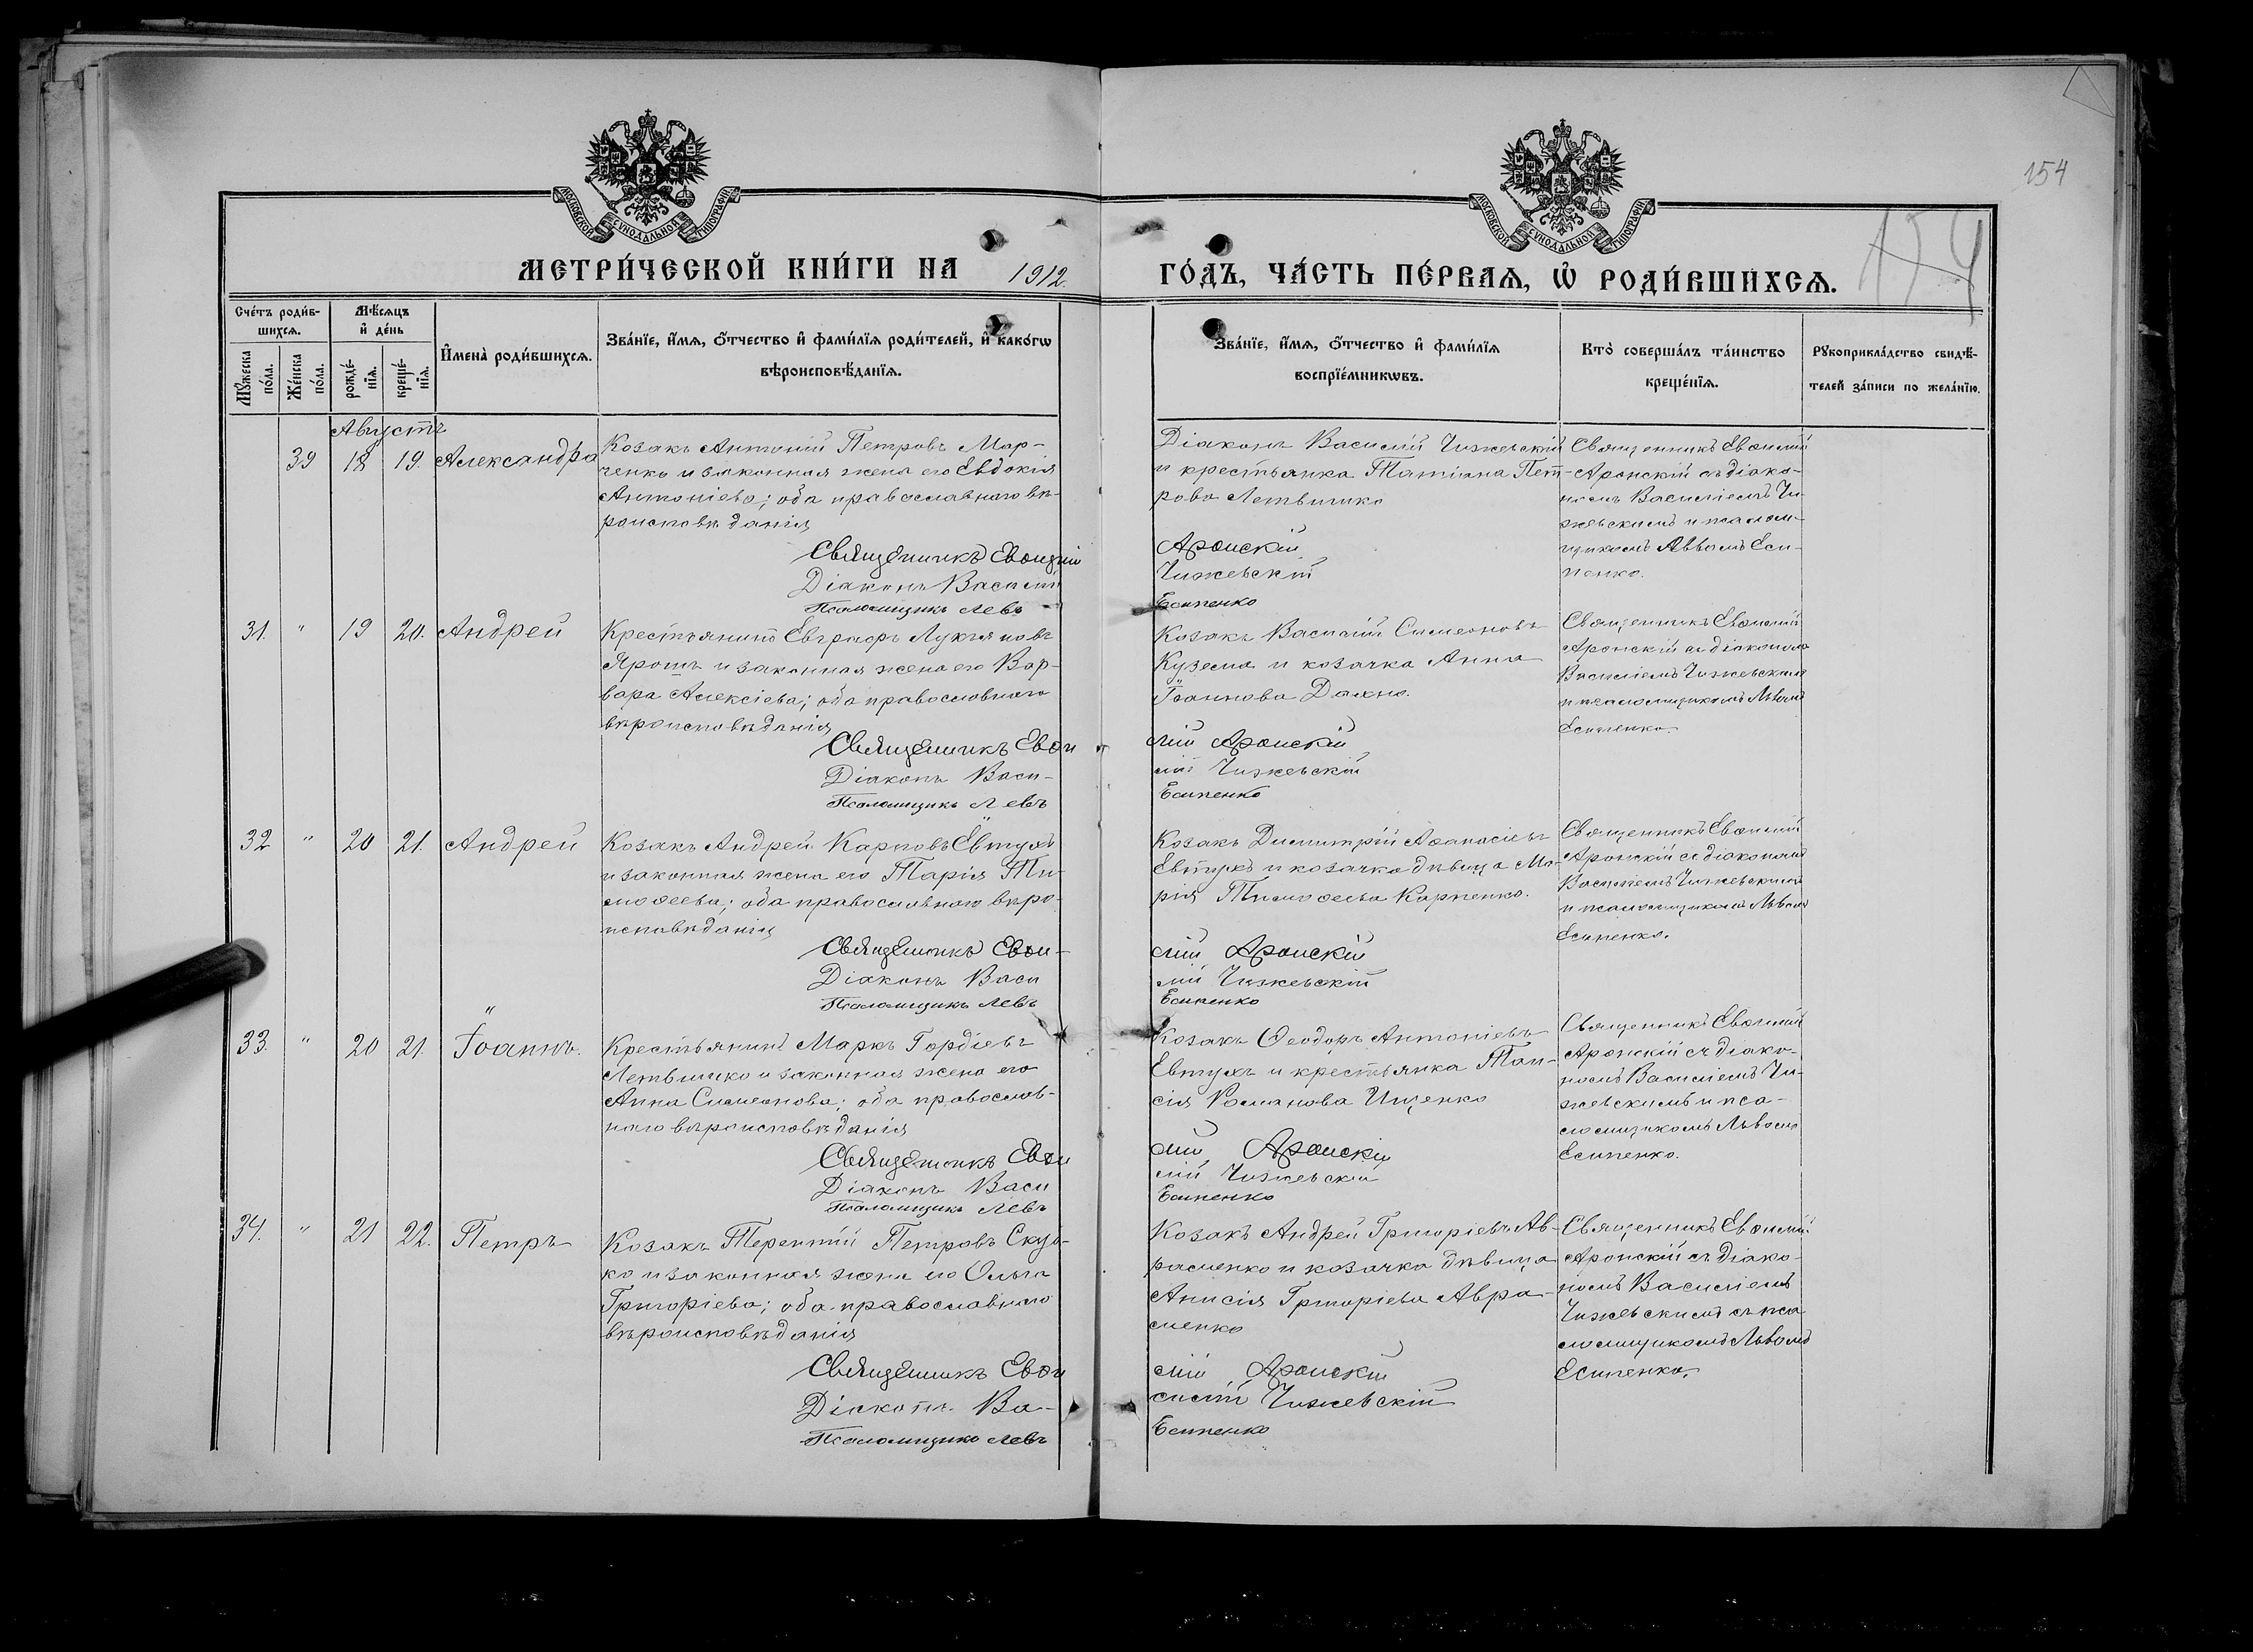 154
154
МОСКОВСКОЙ СѴНОДАЛЬНОЙ ТИПОГРАФІИ
МОСКОВСКОЙ СѴНОДАЛЬНОЙ ТИПОГРАФІИ
МЕТРИ́ЧЕСКОЙ КНИ́ГИ НА 1912.
ГО́ДЪ, ЧА́СТЬ ПЕ́РВАЯ, Ѡ҆ РОДИ́ВШИХСЯ.
Сче́тъ роди́в-
шихся.
Мꙋ́жеска по́ла.
Же́нска по́ла.
Мѣ́сяцъ
и҆ де́нь
рожде́-
нїѧ.
креще́-
нїѧ.
И҆мена̀ роди́вшихся.
Зва́нїе, и҆́мѧ, ѻ҆́тчество и҆ фами́лїѧ роди́телей, и҆ како́гѡ
вѣроисповѣ́данїѧ.
Зва́нїе, и҆́мѧ, ѻ҆́тчество и҆ фами́лїѧ
воспрїе́мникѡвъ.
Кто̀ соверша́лъ та́инство
креще́нїѧ.
Рꙋкоприкла́дство свидѣ́-
телей за́писи по жела́нїю.
Августъ
39 18 19. Александра
Козакъ Антоній Петровъ Мар-
ченко и законная жена его Евдокія
Антоніева; оба православнаго вѣ-
роисповѣданія
Священникъ Евѳимій
Діаконъ Василій
Псаломщикъ Левъ
Діаконъ Василій Чижевскій
и крестьянка Татіана Пет-
рова Летвинко
Аронскій
Чижевскій
Есипенко
Священникъ Евѳимій
Аронскій съ діако-
номъ Василіемъ Чи-
жевскимъ и псалом-
щикомъ Львомъ Еси-
пенко.
31. " 19 20. Андрей
Крестьянинъ Евграфъ Лукіяновъ
Ярошъ и законная жена его Вар-
вара Алексіева; оба православнаго
вѣроисповѣданія
Священникъ Евѳи
Діаконъ Васи-
Псаломщикъ Левъ
Козакъ Василій Симеоновъ
Куземa и козачка Анна
Іоаннова Дахно.
мій Аронскій
лій Чижевскій
Есипенко
Священникъ Евѳимій
Аронскій съ діакономъ
Василіемъ Чижевскимъ
и псаломщикомъ Львомъ
Есипенко.
32 " 20 21. Андрей
Козакъ Андрей Карповъ Евтухъ
и законная жена его Марія Ти-
моѳеева; оба православнаго вѣро-
исповѣданія
Священникъ Евѳи-
Діаконъ Васи
Псаломщикъ Левъ
Козакъ Димитрій Аѳанасіевъ
Евтухъ и козачка дѣвица Ма-
рія Тимоѳеева Карпенко.
мій Аронскій
лій Чижевскій
Есипенко
Священникъ Евѳимій
Аронскій съ діакономъ
Василіемъ Чижевскимъ
и псаломщикомъ Львомъ
Есипенко.
33. " 20 21. Іоаннъ.
Крестьянинъ Маркъ Гордіевъ
Летвинко и законная жена его
Анна Симеонова; оба православ-
наго вѣроисповѣданія
Священникъ Евѳи
Діаконъ Васи
Псаломщикъ Левъ
Козакъ Ѳеодоръ Антоніевъ
Евтухъ и крестьянка Таи-
сія Романова Ищенко
мій Аронскій
лій Чижевскій
Есипенко
Священникъ Евѳимій
Аронскій съ діако-
номъ Василіемъ Чи-
жевскимъ и пса-
ломщикомъ Львомъ
Есипенко.
34. " 21 22. Петръ
Козакъ Терентій Петровъ Скуб-
ко и законная жена его Ольга
Григоріева; оба православнаго
вѣроисповѣданія
Священникъ Евѳи
Діаконъ Ва-
Псаломщикъ Левъ
Козакъ Андрей Григоріевъ Ав-
раменко и козачка дѣвица
Анисія Григоріева Авра-
менко
мій Аронскій
силій Чижевскій
Есипенко
Священникъ Евѳимій
Аронскій съ діако-
номъ Василіемъ
Чижевскимъ съ пса
ломщикомъ Львомъ
Есипенко.